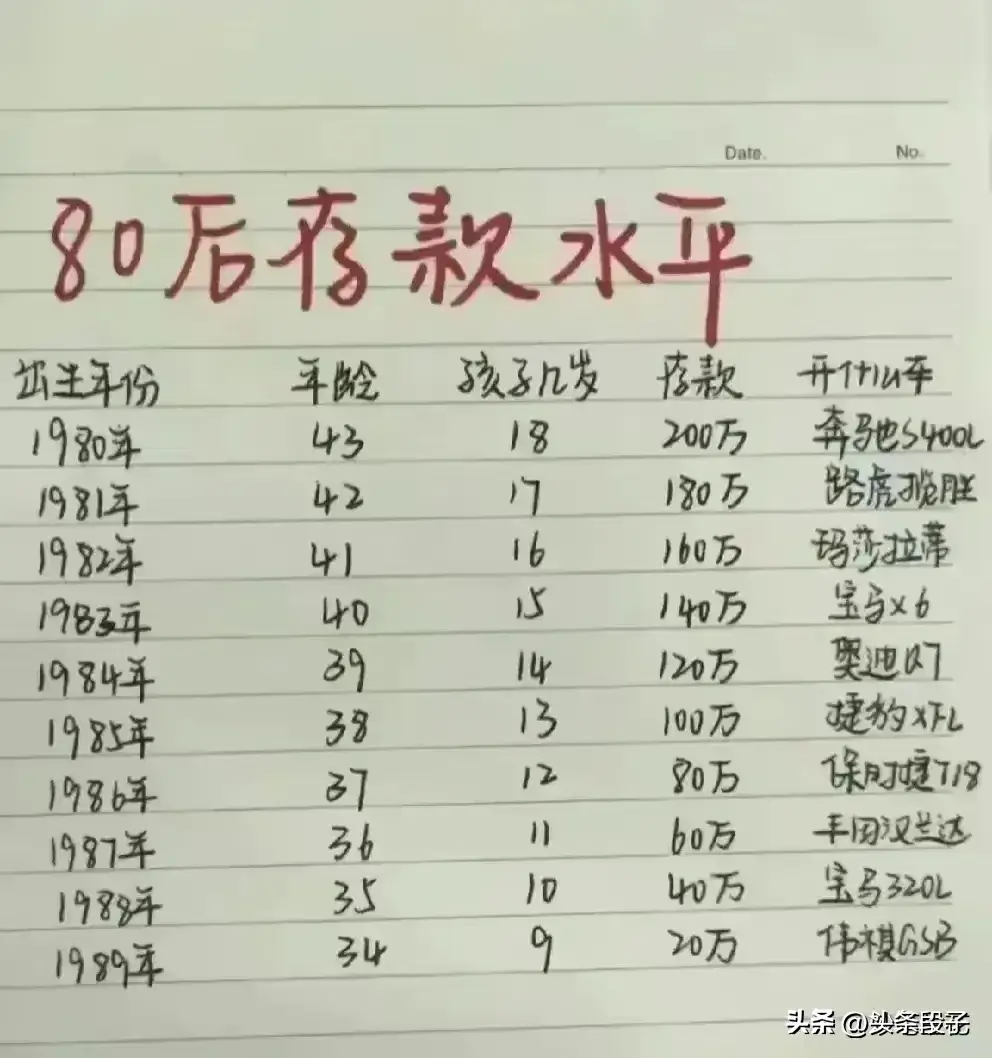 Date. No.
80后存款水平
出生年份 年龄 孩子几岁 存款 开什么车
1980年 43 18 200万 奔驰S400L
1981年 42 17 180万 路虎揽胜
1982年 41 16 160万 玛莎拉蒂
1983年 40 15 140万 宝马X6
1984年 39 14 120万 奥迪Q7
1985年 38 13 100万 捷豹XFL
1986年 37 12 80万 保时捷718
1987年 36 11 60万 丰田汉兰达
1988年 35 10 40万 宝马320L
1989年 34 9 20万 伟祺GS3
头条 @头条段子